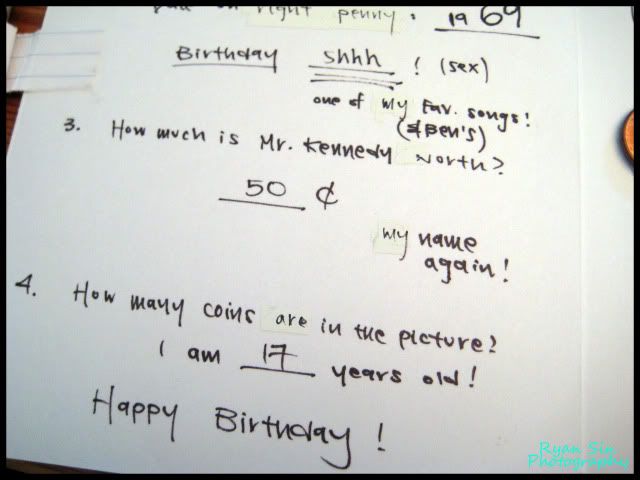 on right penny: 1969
Birthday shhh ! (sex)
one of my fav. songs!
(& Ben's)
3. How much is Mr. Kennedy worth?
50 ¢
my name
again!
4. How many coins are in the picture?
I am 17 years old!
Happy Birthday!
Ryan Sin
Photography